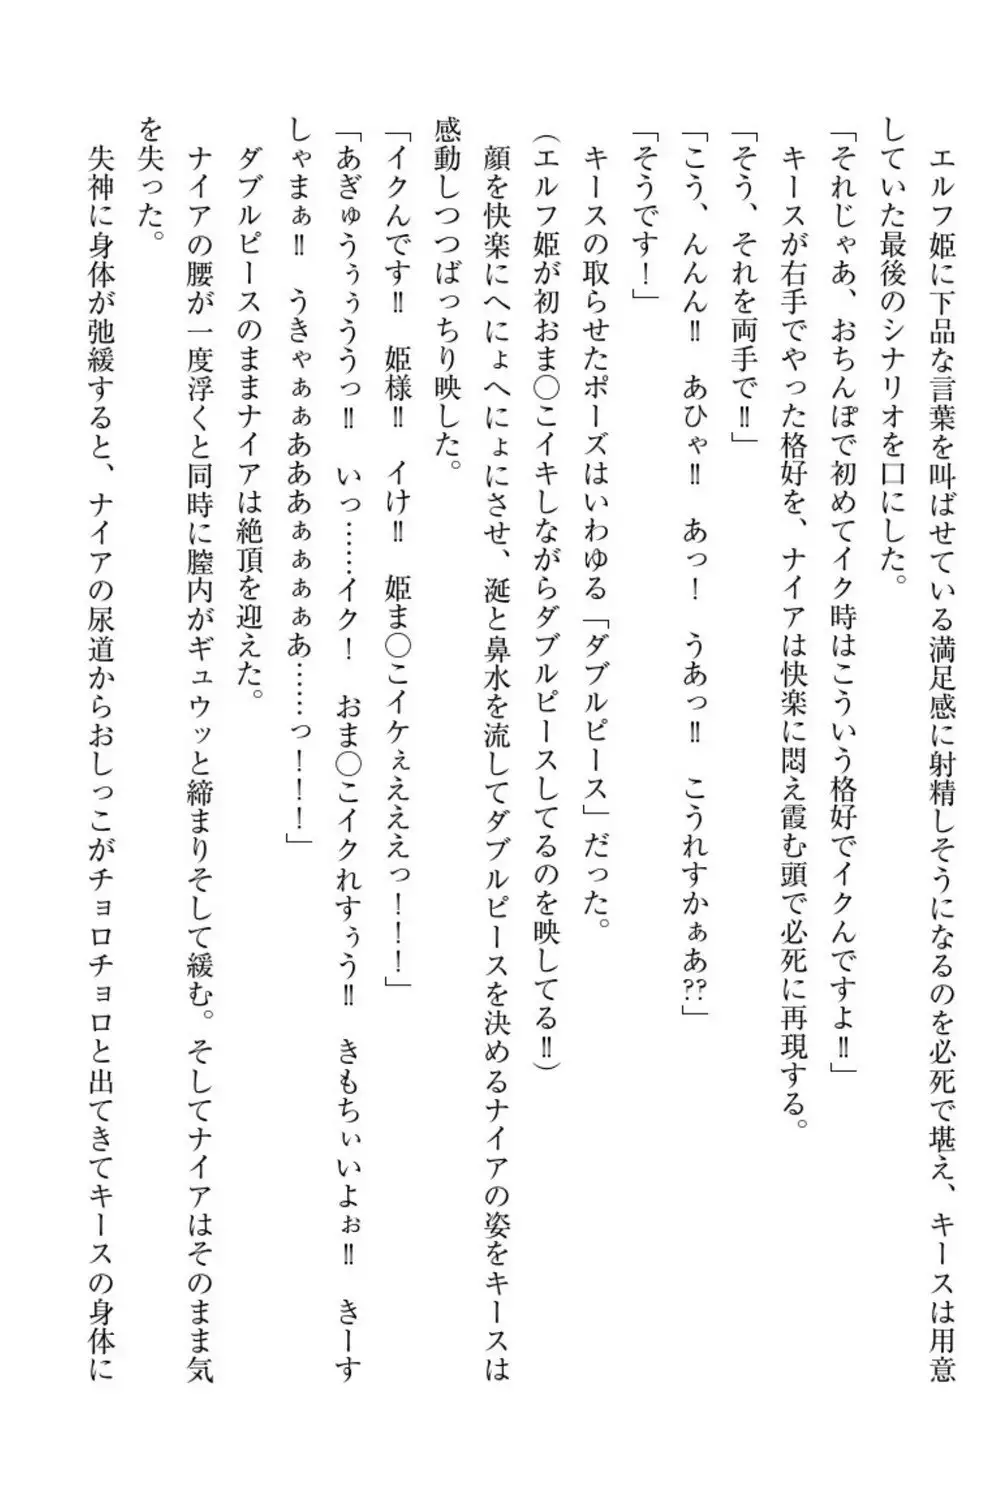 エルフ姫に下品な言葉を叫ばせている満足感に射精しそうになるのを必死で堪え、キースは用意
していた最後のシナリオを口にした。
「それじゃあ、おちんぽで初めてイク時はこういう格好でイクんですよ‼」
キースが右手でやった格好を、ナイアは快楽に悶え霞む頭で必死に再現する。
「そう、それを両手で‼」
「こう、んんん‼　あひゃ‼　あっ！　うあっ‼　こうれすかぁあ??」
「そうです！」
キースの取らせたポーズはいわゆる「ダブルピース」だった。
(エルフ姫が初おま◯こイキしながらダブルピースしてるのを映してる‼)
顔を快楽にへにょへにょにさせ、涎と鼻水を流してダブルピースを決めるナイアの姿をキースは
感動しつつばっちり映した。
「イクんです‼　姫様‼　イけ‼　姫ま◯こイケぇえええっ！！！」
「あぎゅうぅぅううっ‼　いっ……イク！　おま◯こイクれすぅう‼　きもちぃいよぉ‼　きーす
しゃまぁ‼　うきゃぁぁあああぁぁぁぁあ……っ！！！」
ダブルピースのままナイアは絶頂を迎えた。
ナイアの腰が一度浮くと同時に膣内がギュウッと締まりそして緩む。そしてナイアはそのまま気
を失った。
失神に身体が弛緩すると、ナイアの尿道からおしっこがチョロチョロと出てきてキースの身体に